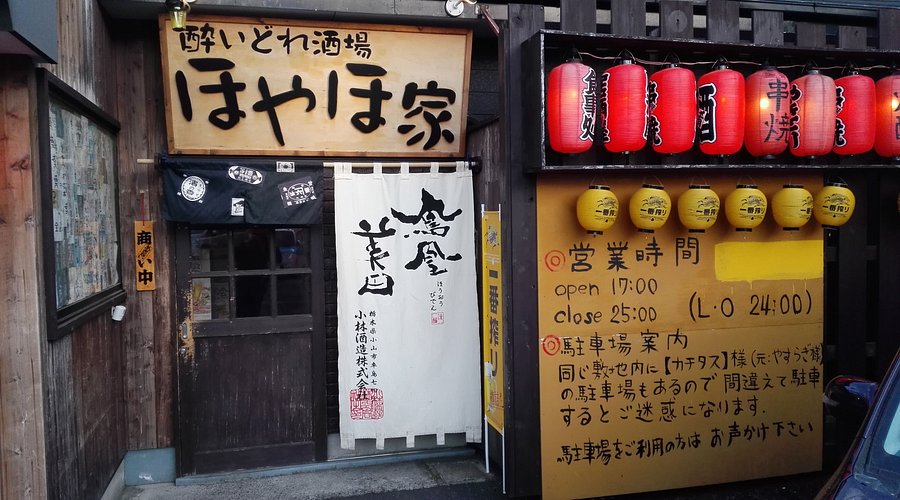 酔いどれ酒場
ほやほ家
商い中
鳳凰
美田
ほうおう
びでん
栃木県小山市卒島七
小林酒造株式会社
一番搾り
酒
串焼
一番搾り
一番搾り
一番搾り
一番搾り
一番搾り
一番搾り
◎営業時間
open 17:00
close 25:00 (L・O 24:00)
◎駐車場案内
同じ敷地内に【カチタス】様(元:やすらぎ様)
の駐車場もあるので間違えて駐車
するとご迷惑になります.
駐車場をご利用の方は お声かけ下さい